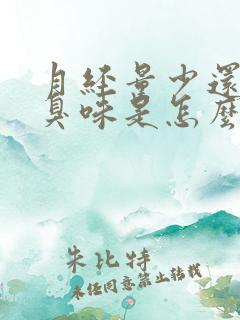 月經量少還
臭味是怎麼
朱比特
未經同意禁止轉載